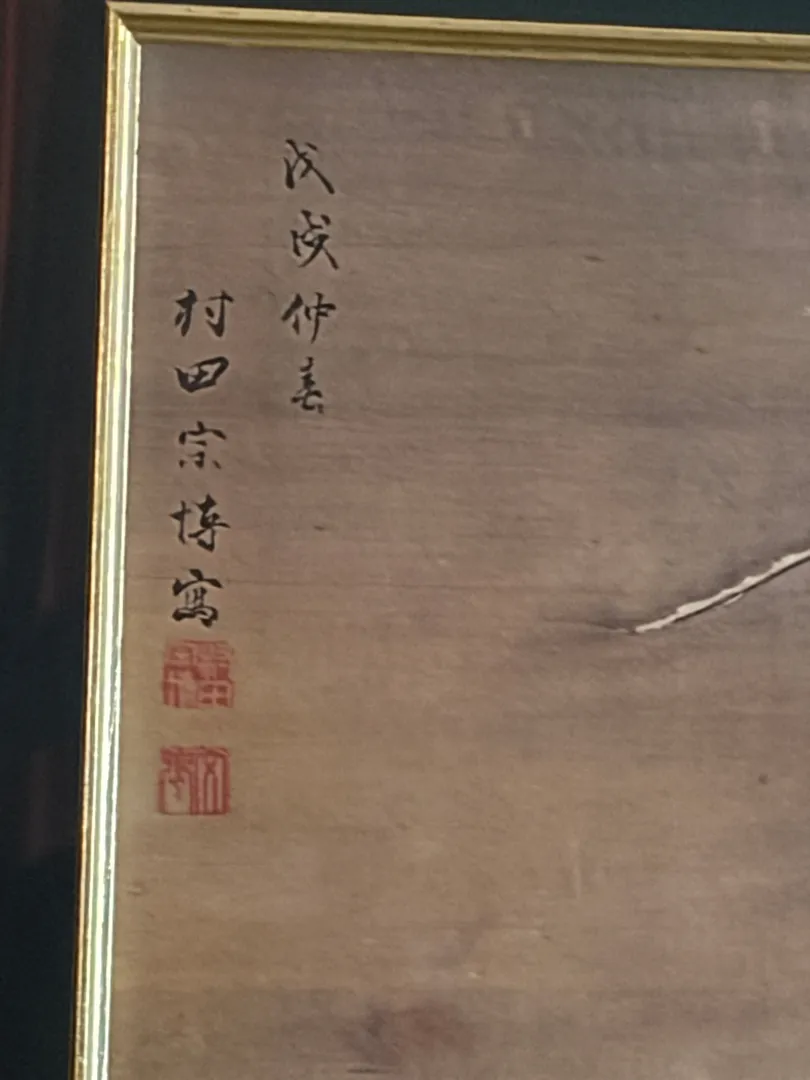 戊戌仲春
村田宗博寫